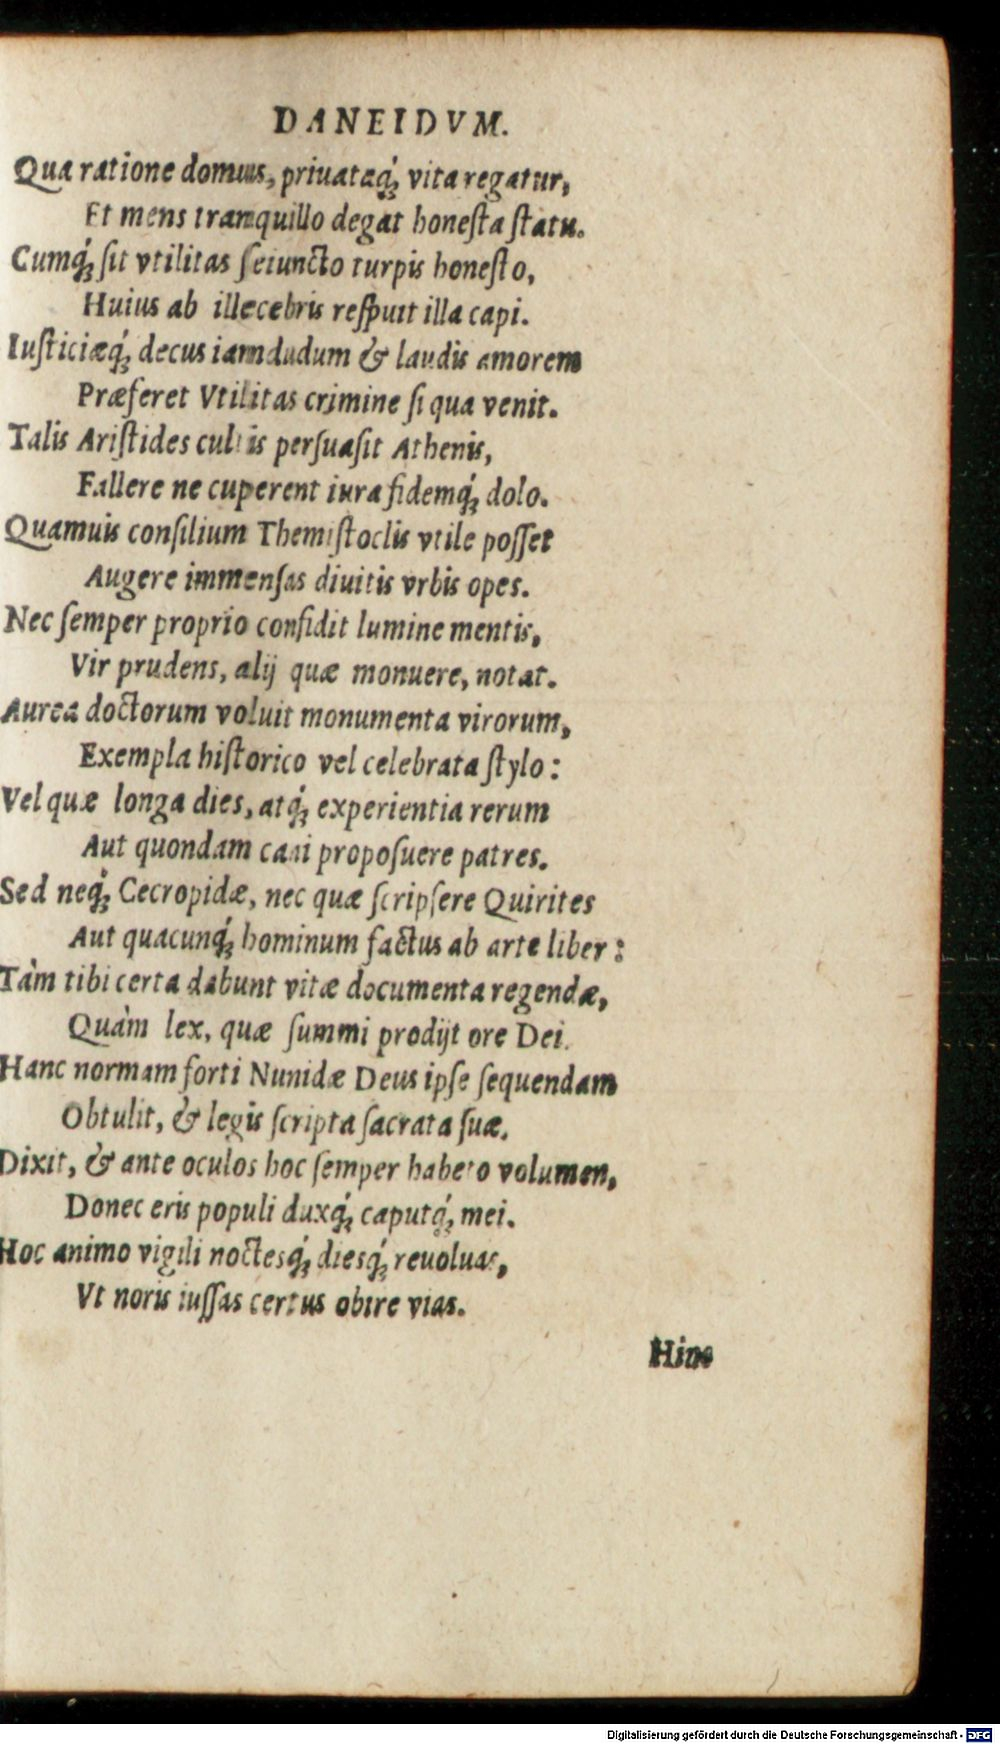 DANEIDVM.
Qua ratione domus, priuataq́; vita regatur,
Et mens tranquillo degat honeſta ſtatu.
Cumq́; ſit vtilitas ſeiuncto turpis honeſto,
Huius ab illecebris reſpuit illa capi.
Iuſticiæq́; decus iamdudum & laudis amorem
Præferet Vtilitas crimine ſi qua venit.
Talis Ariſtides cultis perſuaſit Athenis,
Fallere ne cuperent iura fidemq́; dolo.
Quamuis conſilium Themiſtoclis vtile poſſet
Augere immenſas diuitis vrbis opes.
Nec ſemper proprio confidit lumine mentis,
Vir prudens, alij quæ monuere, notat.
Aurea doctorum voluit monumenta virorum,
Exempla hiſtorico vel celebrata ſtylo:
Vel quæ longa dies, atq́; experientia rerum
Aut quondam cani propoſuere patres.
Sed neq́; Cecropidæ, nec quæ ſcripſere Quirites
Aut quacunq́; hominum factus ab arte liber:
Tàm tibi certa dabunt vitæ documenta regendæ,
Quàm lex, quæ ſummi prodijt ore Dei.
Hanc normam forti Nunidæ Deus ipſe ſequendam
Obtulit, & legis ſcripta ſacrata ſuæ.
Dixit, & ante oculos hoc ſemper habeto volumen,
Donec eris populi duxq́; caputq́; mei.
Hoc animo vigili noctesq́; diesq́; reuoluas,
Vt noris iuſſas certus obire vias.
Digitalisierung gefördert durch die Deutsche Forschungsgemeinschaft - DFG